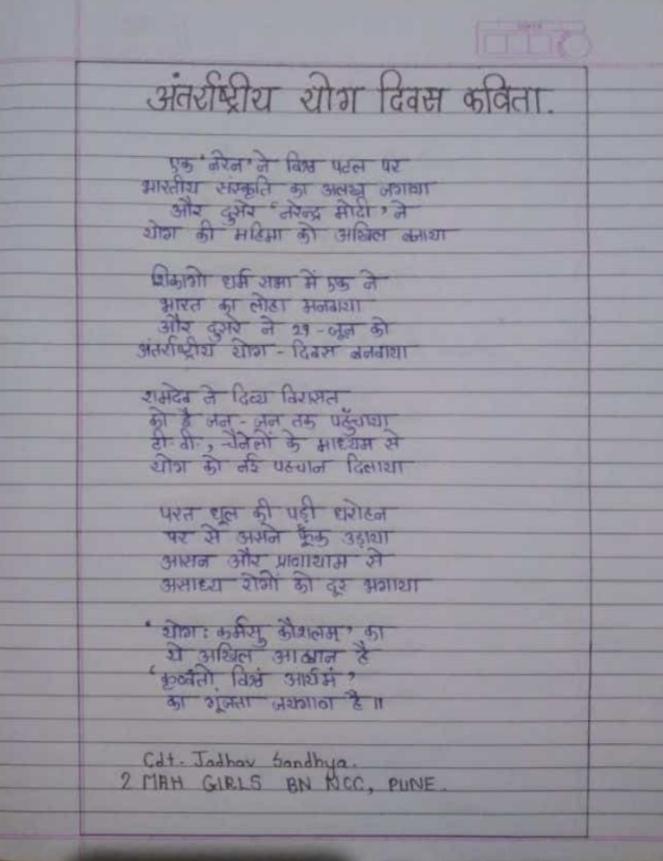 अंतर्राष्ट्रीय योग दिवस कविता.
एक 'नरेन' ने विश्व पटल पर
भारतीय संस्कृति का अलख जगाया
और दुसरे 'नरेन्द्र मोदी' ने
योग की महिमा को अखिल बनाया
शिकागो धर्म सभा में एक ने
भारत का लोहा मनवाया
और दुसरे ने २१ - जून को
अंतर्राष्ट्रीय योग - दिवस बनवाया
रामदेव ने दिव्य विरासत
को है जन - जन तक पहुँचाया
टी. वी., चैनेलों के माध्यम से
योग को नई पहचान दिलाया
परत धूल की पड़ी धरोहन
पर से उसने फूँक उड़ाया
आसन और प्राणायाम से
असाध्य रोगों को दूर भगाया
'योग: कर्मसु कौशलम्' का
ये अखिल आव्हान है
'कृण्वंतो विश्वं आर्यमं'
का गूंजता जयगान है ॥
Cdt. Jadhav Sandhya.
2 MAH GIRLS BN NCC, PUNE.